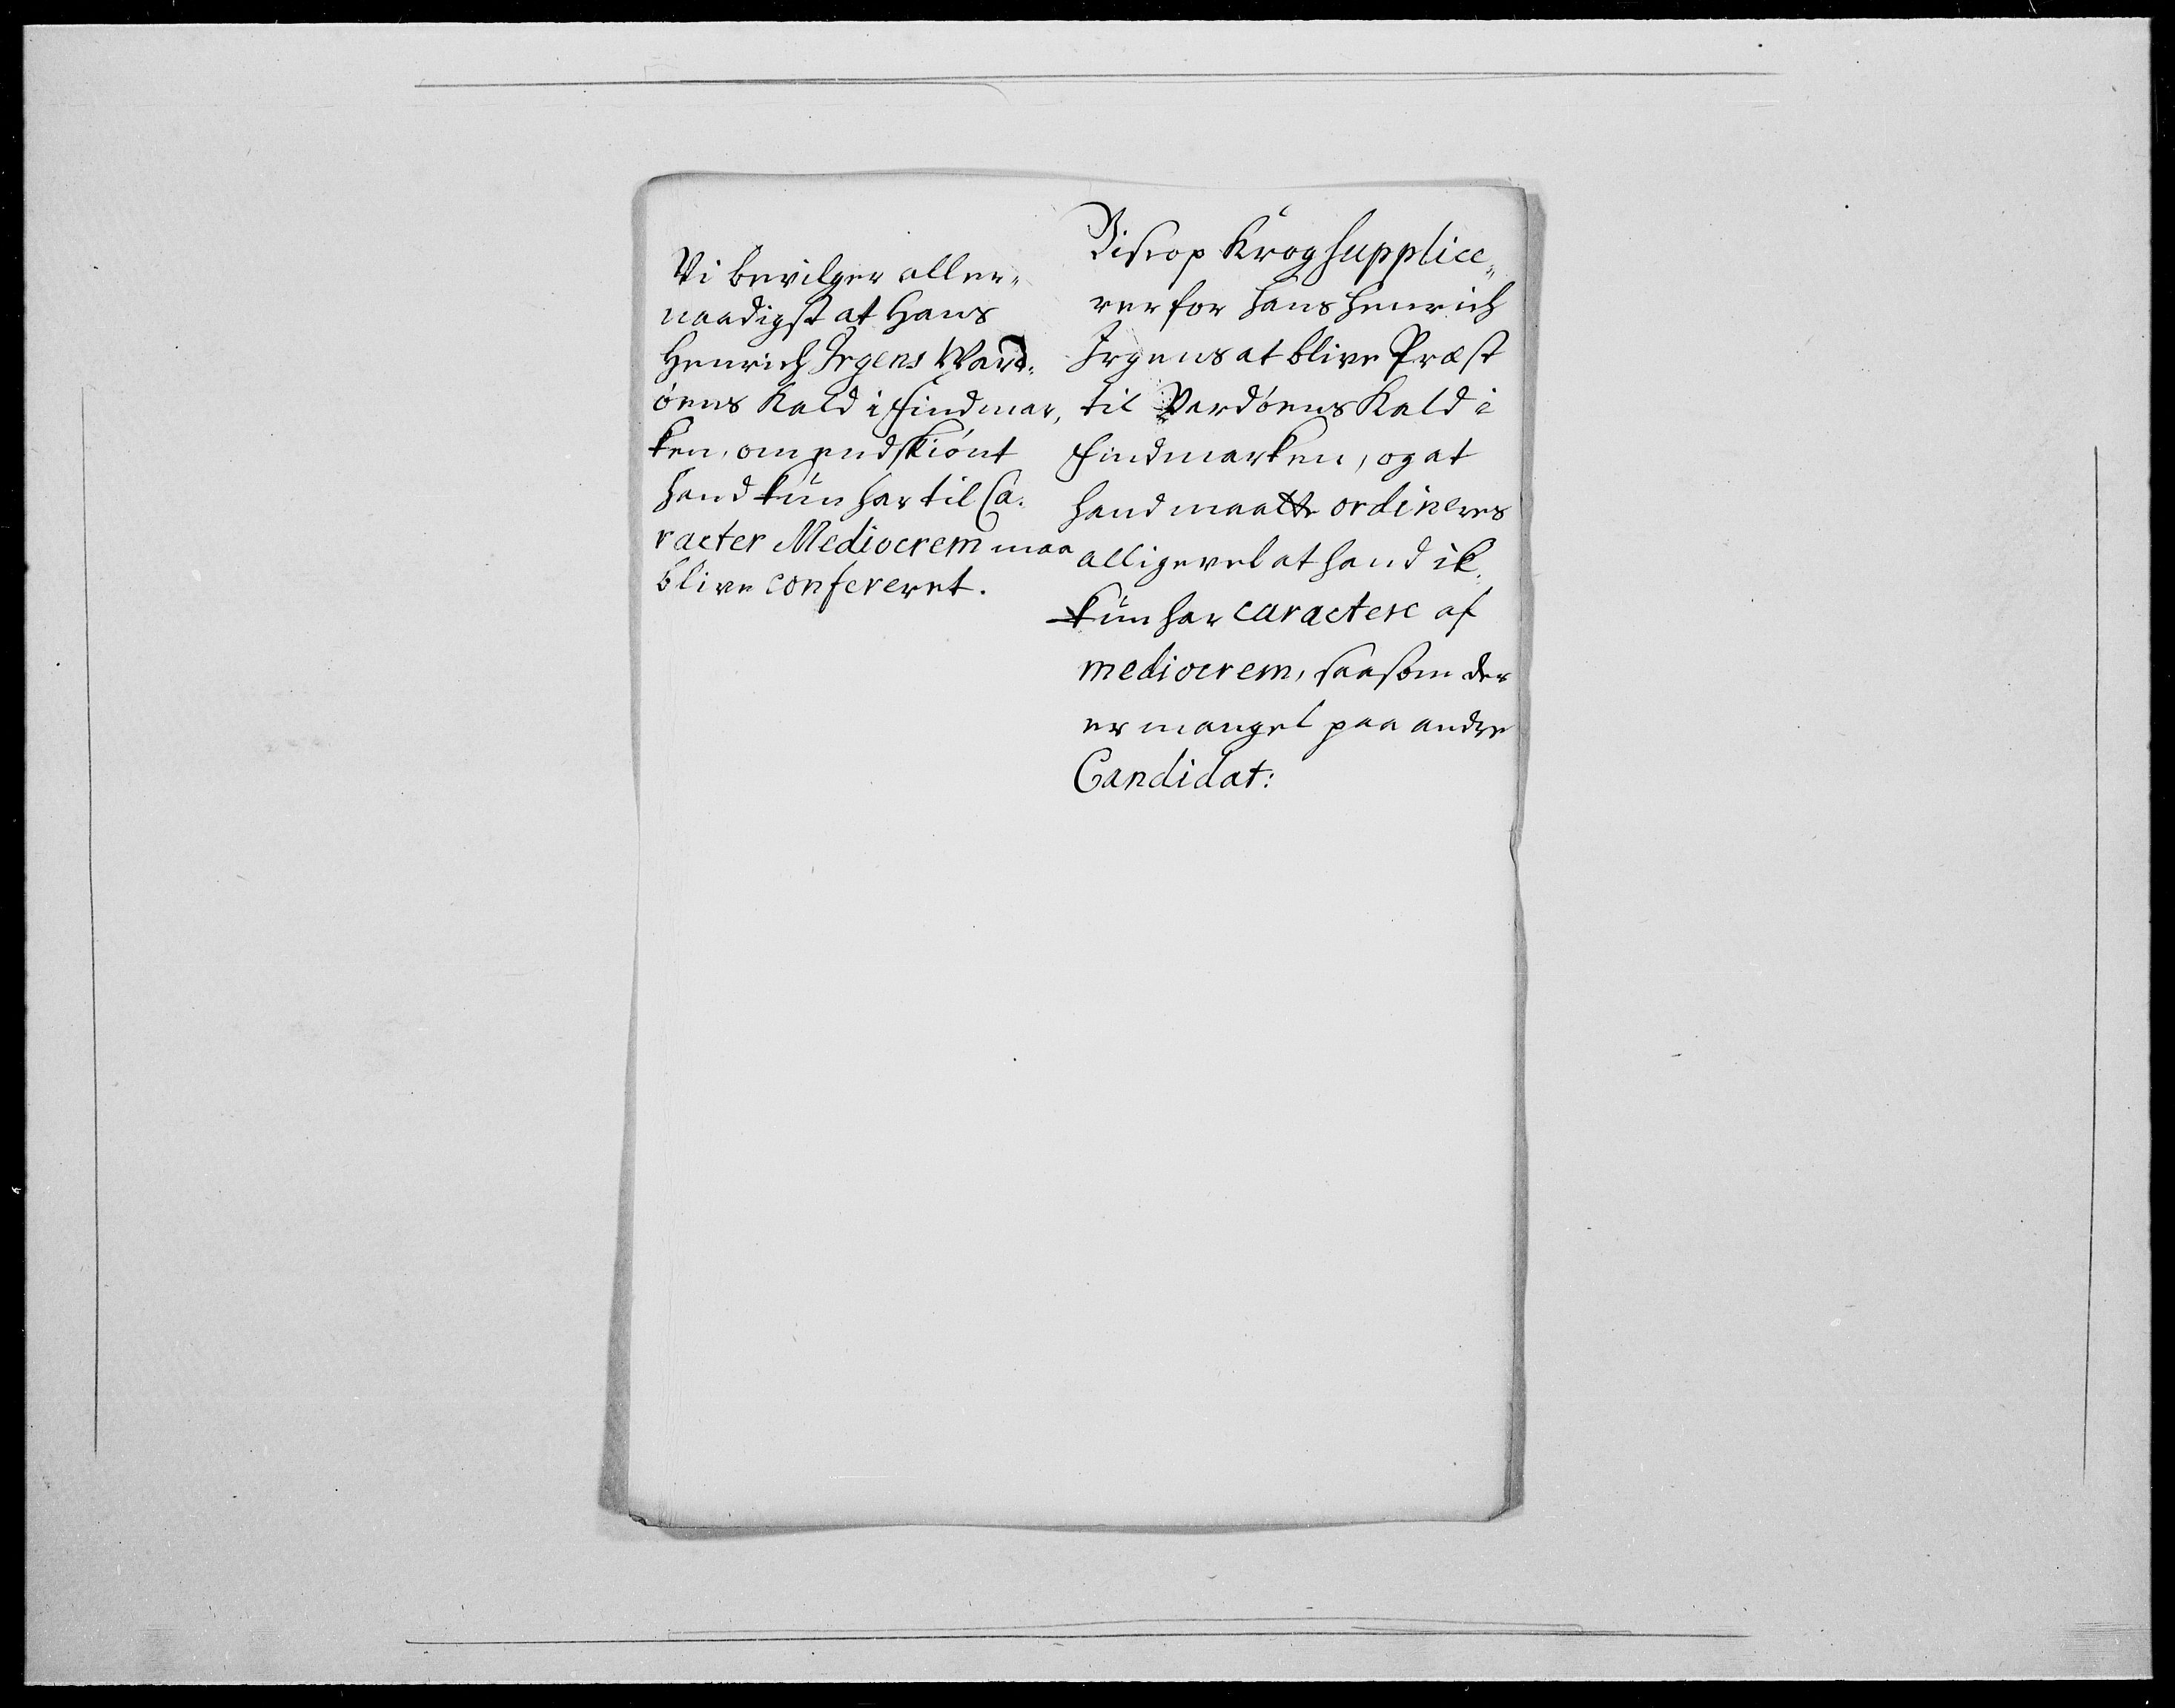 Vi bevilger aller„
naadigst at Hans
Henrich Irgens Ward„
öens Kald i Findmar,
ken, om endskiönt
hand kun har til Ca„
racter Mediocrem maa
blive confereret.
Biscop Krog supplice„
rer for Hans Henrich
Irgens at blive Præst
til Vardöens Kald i
Findmarken, og at
hand maatte ordineres
alligevel at hand ik„
kun har caractere af
mediocrem, saasom der
er mangel paa andre
Candidat: